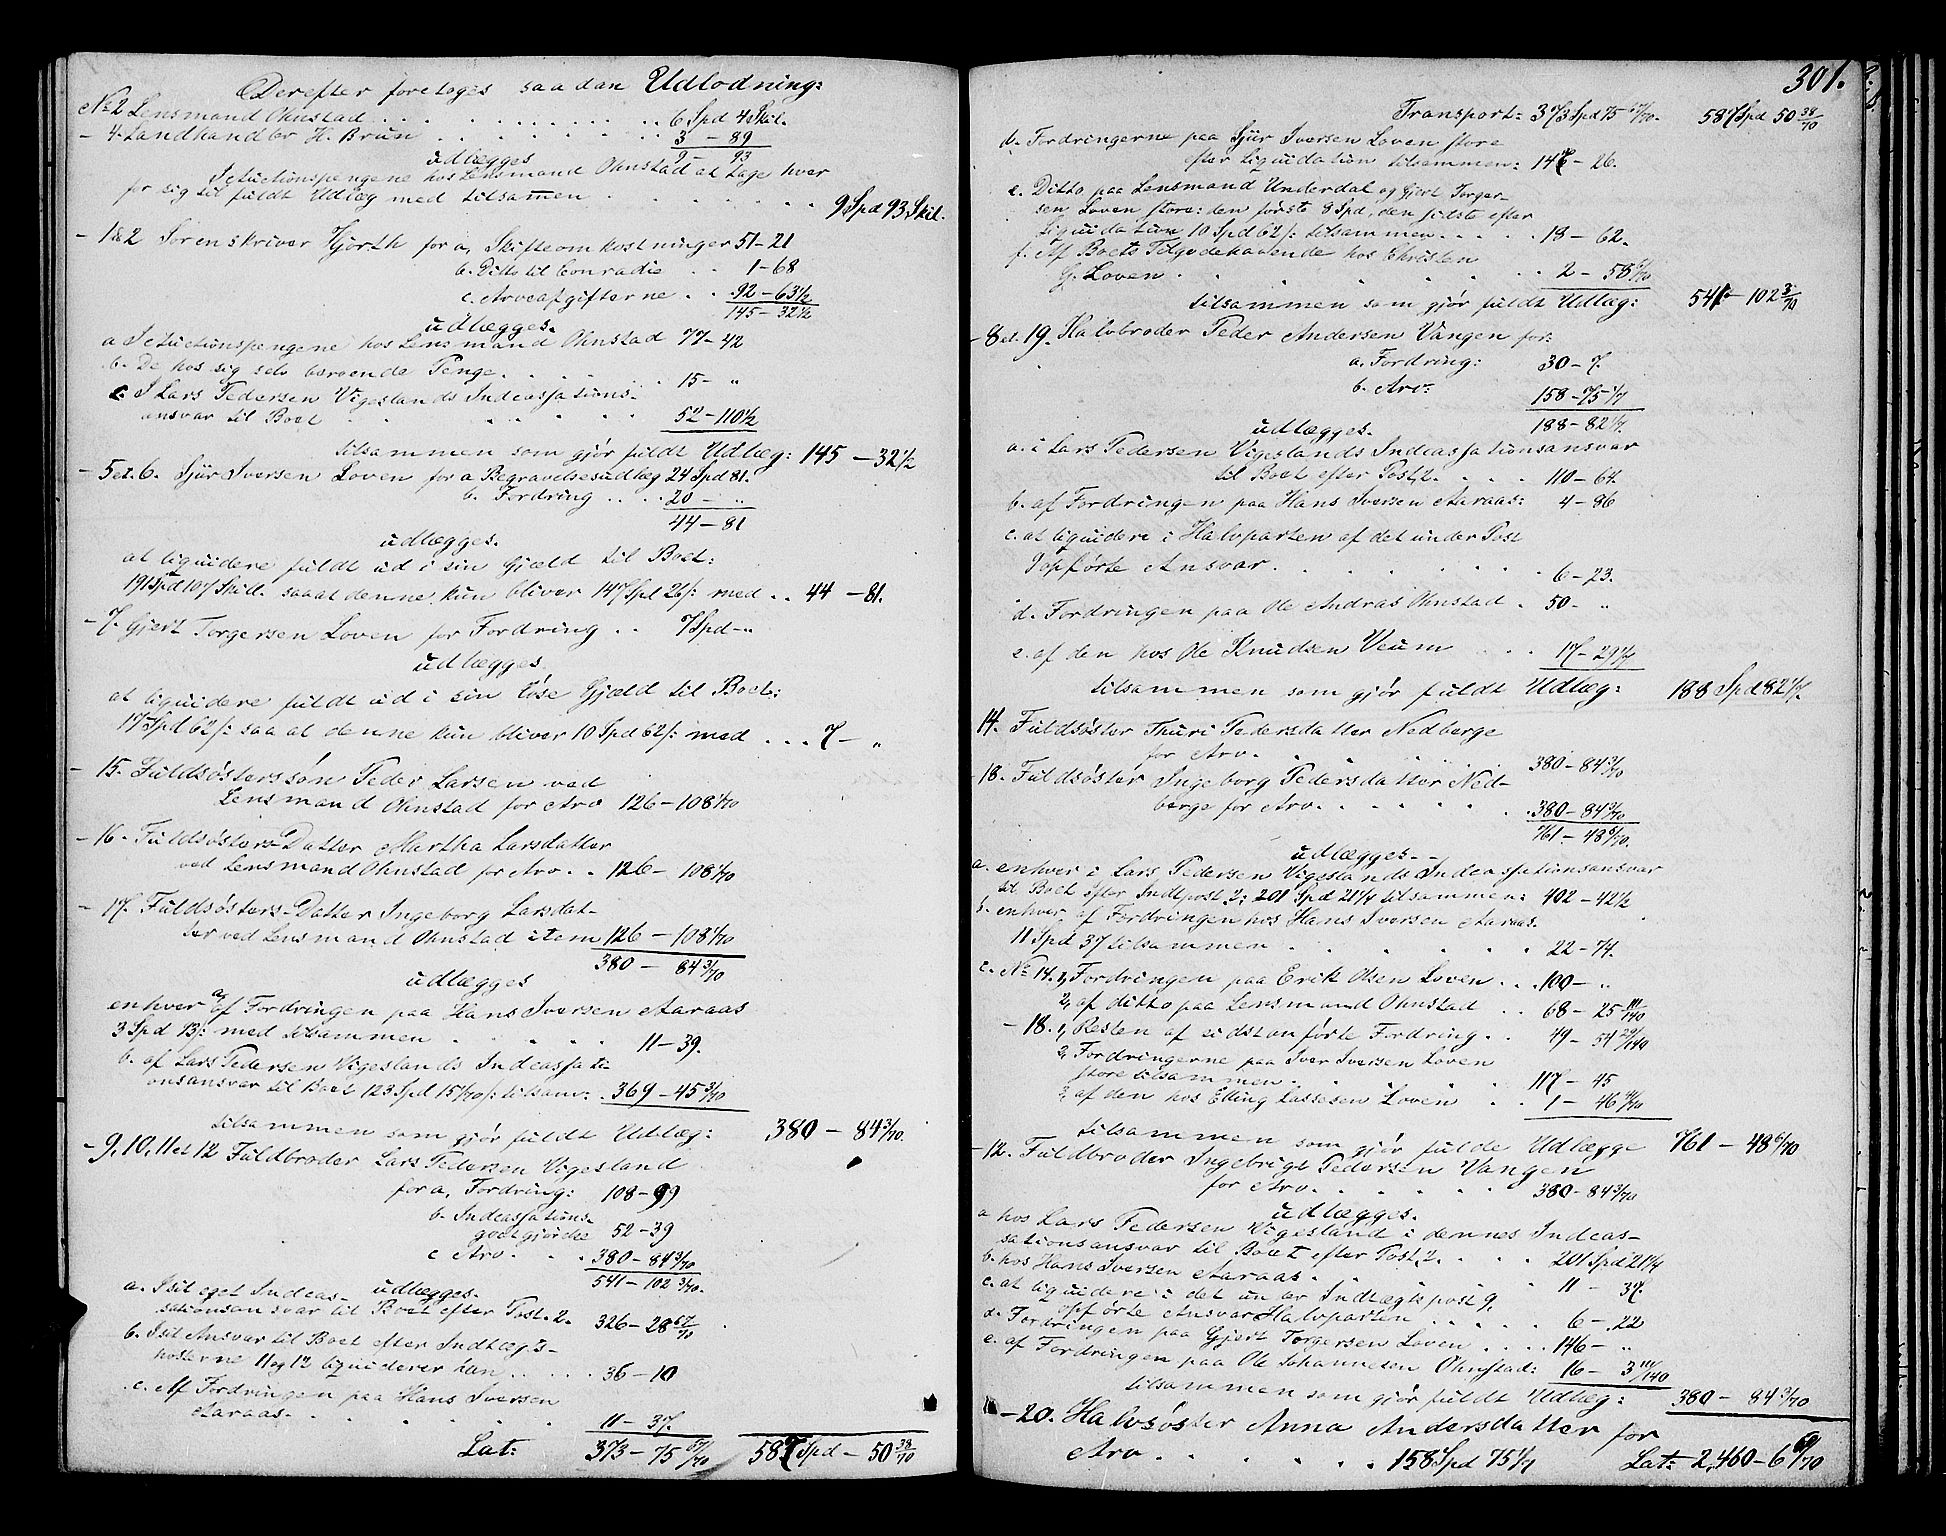 Derefter foretoges saadan Udlodning:
No 2 Lensmand Ohnstad . . . 6 Spd 4 Skil.
- 4. Landhandler H. Brun . . . 3 - 89
9 - 93
udlægges
I Auctionspengene hos Lensmand Ohnstad at tage hver
for sig til fuldt Udlæg med tilsammen . . . 9 Spd 93 Skil.
- 1 & 2 Sorenskriver Hjorth for a, Skifteomkostninger 51 - 21
b. Ditto til Conradie . . 1 - 68
c. Arveafgifterne . . 92 - 63 1/2
145 - 32 1/2
udlægges.
a I Auctionspengene hos Lensmand Ohnstad 77 - 42
b. De hos sig selv beroende Penge . . . 15 - "
c. I Lars Pedersen Vigeslands Indcassations-
ansvar til Boet . . . 52 - 110 1/2
tilsammen som gjør fuldt Udlæg: 145 - 32 1/2
- 5 et. 6. Sjur Iversen Loven for a Begravelsesudlæg 24 Spd 81.
b. Fordring . . . 20 - "
44 - 81
udlægges.
at liquidere fuldt ud i sin Gjæld til Boet:
191 Spd 107 Skil. saa at denne kun bliver 147 Spd 26 /: med . . 44 - 81.
- 7. Gjert Torgersen Loven for Fordring . . 7 Spd - "
udlægges.
at liquidere fuldt ud i sin løse Gjæld til Boet:
17 Spd 62 /: saa at denne kun bliver 10 Spd 62 /: med . . . 7 - "
- 15. Fuldsøsterssøn Peder Larsen ved
Lensmand Ohnstad for Arv 126 - 108 1/70
- 16. Fuldsøsters-Datter Martha Larsdatter
ved Lensmand Ohnstad for Arv . . 126 - 108 1/70
- 17. Fuldsøsters-Datter Ingeborg Larsdat-
ter ved Lensmand Ohnstad item 126 - 108 1/70
380 - 84 3/70
udlægges
enhver a, af Fordringen paa Hans Iversen Aaraas
3 Spd 13 /: med tilsammen . . . 11 - 39.
b. af Lars Pedersen Vigeslands Indcassati-
onsansvar til Boet 123 Spd 15 1/70 /: tilsam: . 369 - 45 3/70
tilsammen som gjør fuldt Udlæg: 380 - 84 3/70.
- 9, 10, 11 et 12 Fuldbroder Lars Pedersen Vigesland
for a, Fordring: 108 - 99
b. Indcassations-
godtgjørelse 52 - 39
c Arv . . . 380 - 84 3/70
541 - 102 3/70.
udlægges.
a. I sit eget Indcas-
sationsansvar til Boet efter Post. 2. 326 - 28 67/70
b. I sit Ansvar til Boet efter Indtægts-
posterne 11 og 12 liquiderer han . . . 36 - 10
c. Af Fordringen paa Hans Iversen
Aaraas . . . 11 - 37.
Lat: 373 - 75 67/70 587 Spd - 50 38/70
301.
Transport: 373 Spd 75 67/70. 587 Spd 50 38/70
d. Fordringerne paa Sjur Iversen Loven store
efter Liquidation tilsammen: 147 - 26.
e. Ditto paa Lensmand Underdal og Gjert Torger-
sen Loven store: den første 8 Spd, den sidste efter
Liquidation 10 Spd 62 /: tilsammen . . . 18 - 62.
f. Af Boets Tilgodehavende hos Christen
G. Loven . . . 2 - 58 6/70
tilsammen som gjør fuldt Udlæg: 541 - 102 3/70
- 8 et. 19. Halvbroder Peder Andersen Vangen for:
a. Fordring: 30 - 7.
b. Arv: 158 - 75 1/7
188 - 82 1/7.
udlægges.
a. i Lars Pedersen Vigeslands Indcassationsansvar
til Boet efter Post. 2. . . . 110 - 64.
b. af Fordringen paa Hans Iversen Aaraas: 4 - 86
c. at liquidere i Halvparten af det under Post
9 opførte Ansvar . . . 6 - 23.
d. Fordringen paa Ole Andras Ohnstad . 50 - "
e. af den hos Ole Knudsen Veum . . . 17 - 29 1/7
tilsammen som gjør fuldt Udlæg: 188 Spd 82 1/7.
14. Fuldsøster Thuri Pedersdatter Nedberge
for Arv . . . 380 - 84 3/70
- 18. Fuldsøster Ingeborg Pedersdatter Ned-
berge for Arv . . . 380 - 84 3/70
761 - 48 6/70.
udlægges.
a. enhver i Lars Pedersen Vigeslands Indcassationsansvar
til Boet efter Indtpost 2: 201 Spd 21 1/4 tilsammen: 402 - 42 1/2
b. enhver af Fordringen hos Hans Iversen Aaraas.
11 Spd 37 tilsammen . . . 22 - 74.
c. No 14. 1, Fordringen paa Erik Olsen Loven . . . 100 - "
2, af ditto paa Lensmand Ohnstad . . 68 - 25 111/140
- 18. 1, Resten af sidstanførte Fordring . . 49 - 54 29/140
2, Fordringerne paa Iver Iversen Loven
store tilsammen . . . 117 - 45
3, af den hos Elling Lassesen Loven . . 1 - 46
tilsammen som gjør fulde Udlægge 761 - 48 6/70
- 12. Fuldbroder Ingebrigt Pedersen Vangen
for Arv . . . 380 - 84 3/70
udlægges.
a hos Lars Pedersen Vigesland i dennes Indcas-
sationsansvar til Boet efter Post. 2. . . . 201 Spd 21 1/4
b. hos Hans Iversen Aaraas . . . 11 - 37.
c. at liquidere i det under Indtægtspost 9.
opførte Ansvar Halvparten . . . 6 - 22
d. Fordringen paa Gjert Torgersen Loven . . . 146 - "
e. af Fordringen paa Ole Johannesen Ohnstad: 16 - 3 111/140
tilsammen som gjør fuldt Udlæg: 380 - 84 3/70
- 20. Halvsøster Anna Andersdatter for
Arv . . . 158 Spd 75 1/7 Lat: 2,460 - 6 69/70